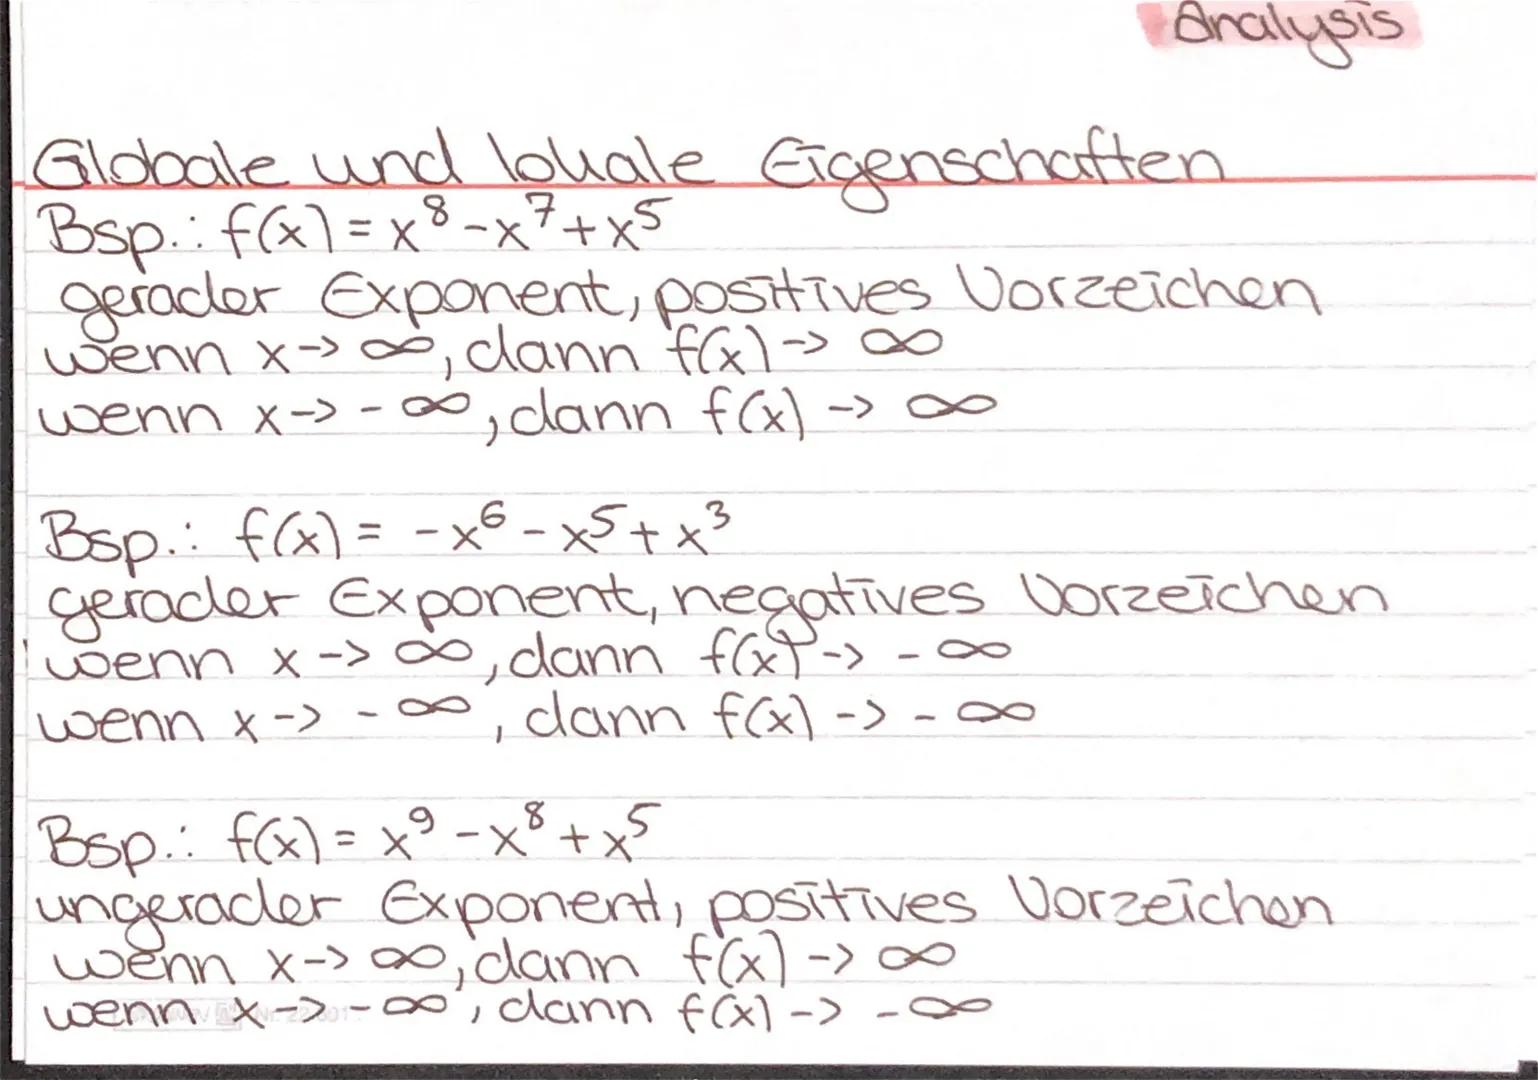 Analysis
Globale und lokale Eigenschaften
Bsp.: f(x) = x⁸ - x⁷ + x⁵
gerader Exponent, positives Vorzeichen
wenn x -> ∞, dann f(x) -> ∞
wenn x -> - ∞, dann f(x) -> ∞
Bsp.: f(x) = -x⁶ - x⁵ + x³
gerader Exponent, negatives Vorzeichen
wenn x -> ∞, dann f(x) -> - ∞
wenn x -> - ∞, dann f(x) -> - ∞
Bsp.: f(x) = x⁹ - x⁸ + x⁵
ungerader Exponent, positives Vorzeichen
wenn x -> ∞, dann f(x) -> ∞
wenn x -> - ∞, dann f(x) -> - ∞